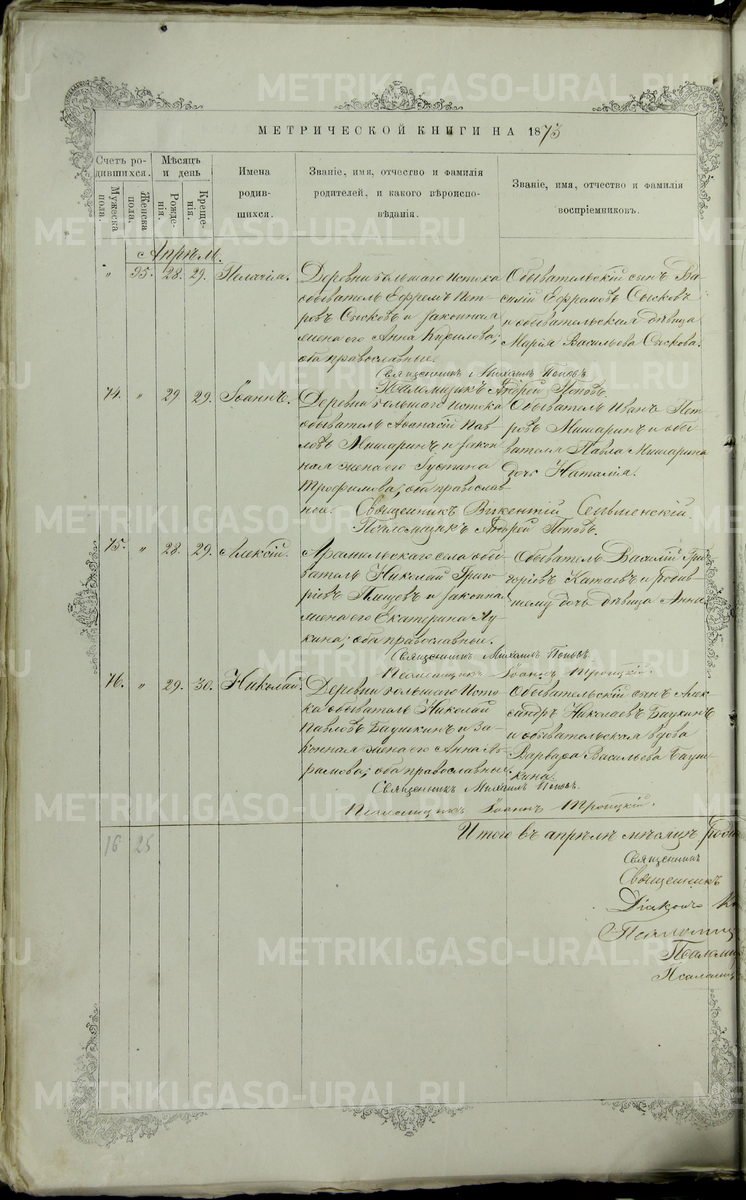 METRIKI.GASO-URAL.RU
МЕТРИЧЕСКОЙ КНИГИ НА 1875
Счетъ родившихся.
Мужеска пола.
Женска пола.
Мѣсяцъ и день
Рожденія.
Крещенія.
Имена родившихся.
Званіе, имя, отчество и фамилія родителей, и какого вѣроисповѣданія.
Званіе, имя, отчество и фамилія воспріемниковъ.
Апрѣль.
" 35. 28. 29. Пелагія.
Деревни большаго Истока
обыватель Ефремъ Петровъ
Сысковъ и законная
жена его Анна Кирилова;
оба православные.
Обывательскій сынъ Василій
Ефремовъ Сысковъ
и обывательская дѣвица
Марія Васильева Сыскова.
Священникъ Михаилъ Поповъ
Псаломщикъ Андрей Поповъ.
74. " 29. 29. Іоаннъ.
Деревни большаго Истока
обыватель Аѳанасій Павловъ
Мишаринъ и законная
жена его Іустина
Трофимова; оба православной.
Обыватель Иванъ Петровъ
Мишаринъ и обывателя
Павла Мишарина
дочь Наталія.
Священникъ Викентій
Псаломщикъ Андрей Поповъ.
75. " 28. 29. Алексій.
Арамильскаго села обыватель
Николай Григорьевъ
и законная
жена его Екатерина Лукина;
оба православной.
Обыватель Василій Григорьевъ
Катаевъ и
дочь дѣвица Анна
Священникъ Михаилъ Поповъ.
Псаломщикъ Іоаннъ Троицкій.
76. " 29. 30. Николай.
Деревни большаго Истока
обыватель Николай
Павловъ и законная
жена его Анна
оба православные.
Обывательскій сынъ Александръ
Николаевъ
и обывательская вдова
Варвара Васильева
Священникъ Михаилъ Поповъ.
Псаломщикъ Іоаннъ Троицкій.
16 25
Итого въ апрѣлѣ мѣсяцѣ
Священникъ
Священникъ
Діаконъ
Псаломщ
Псалом
Псаломщ